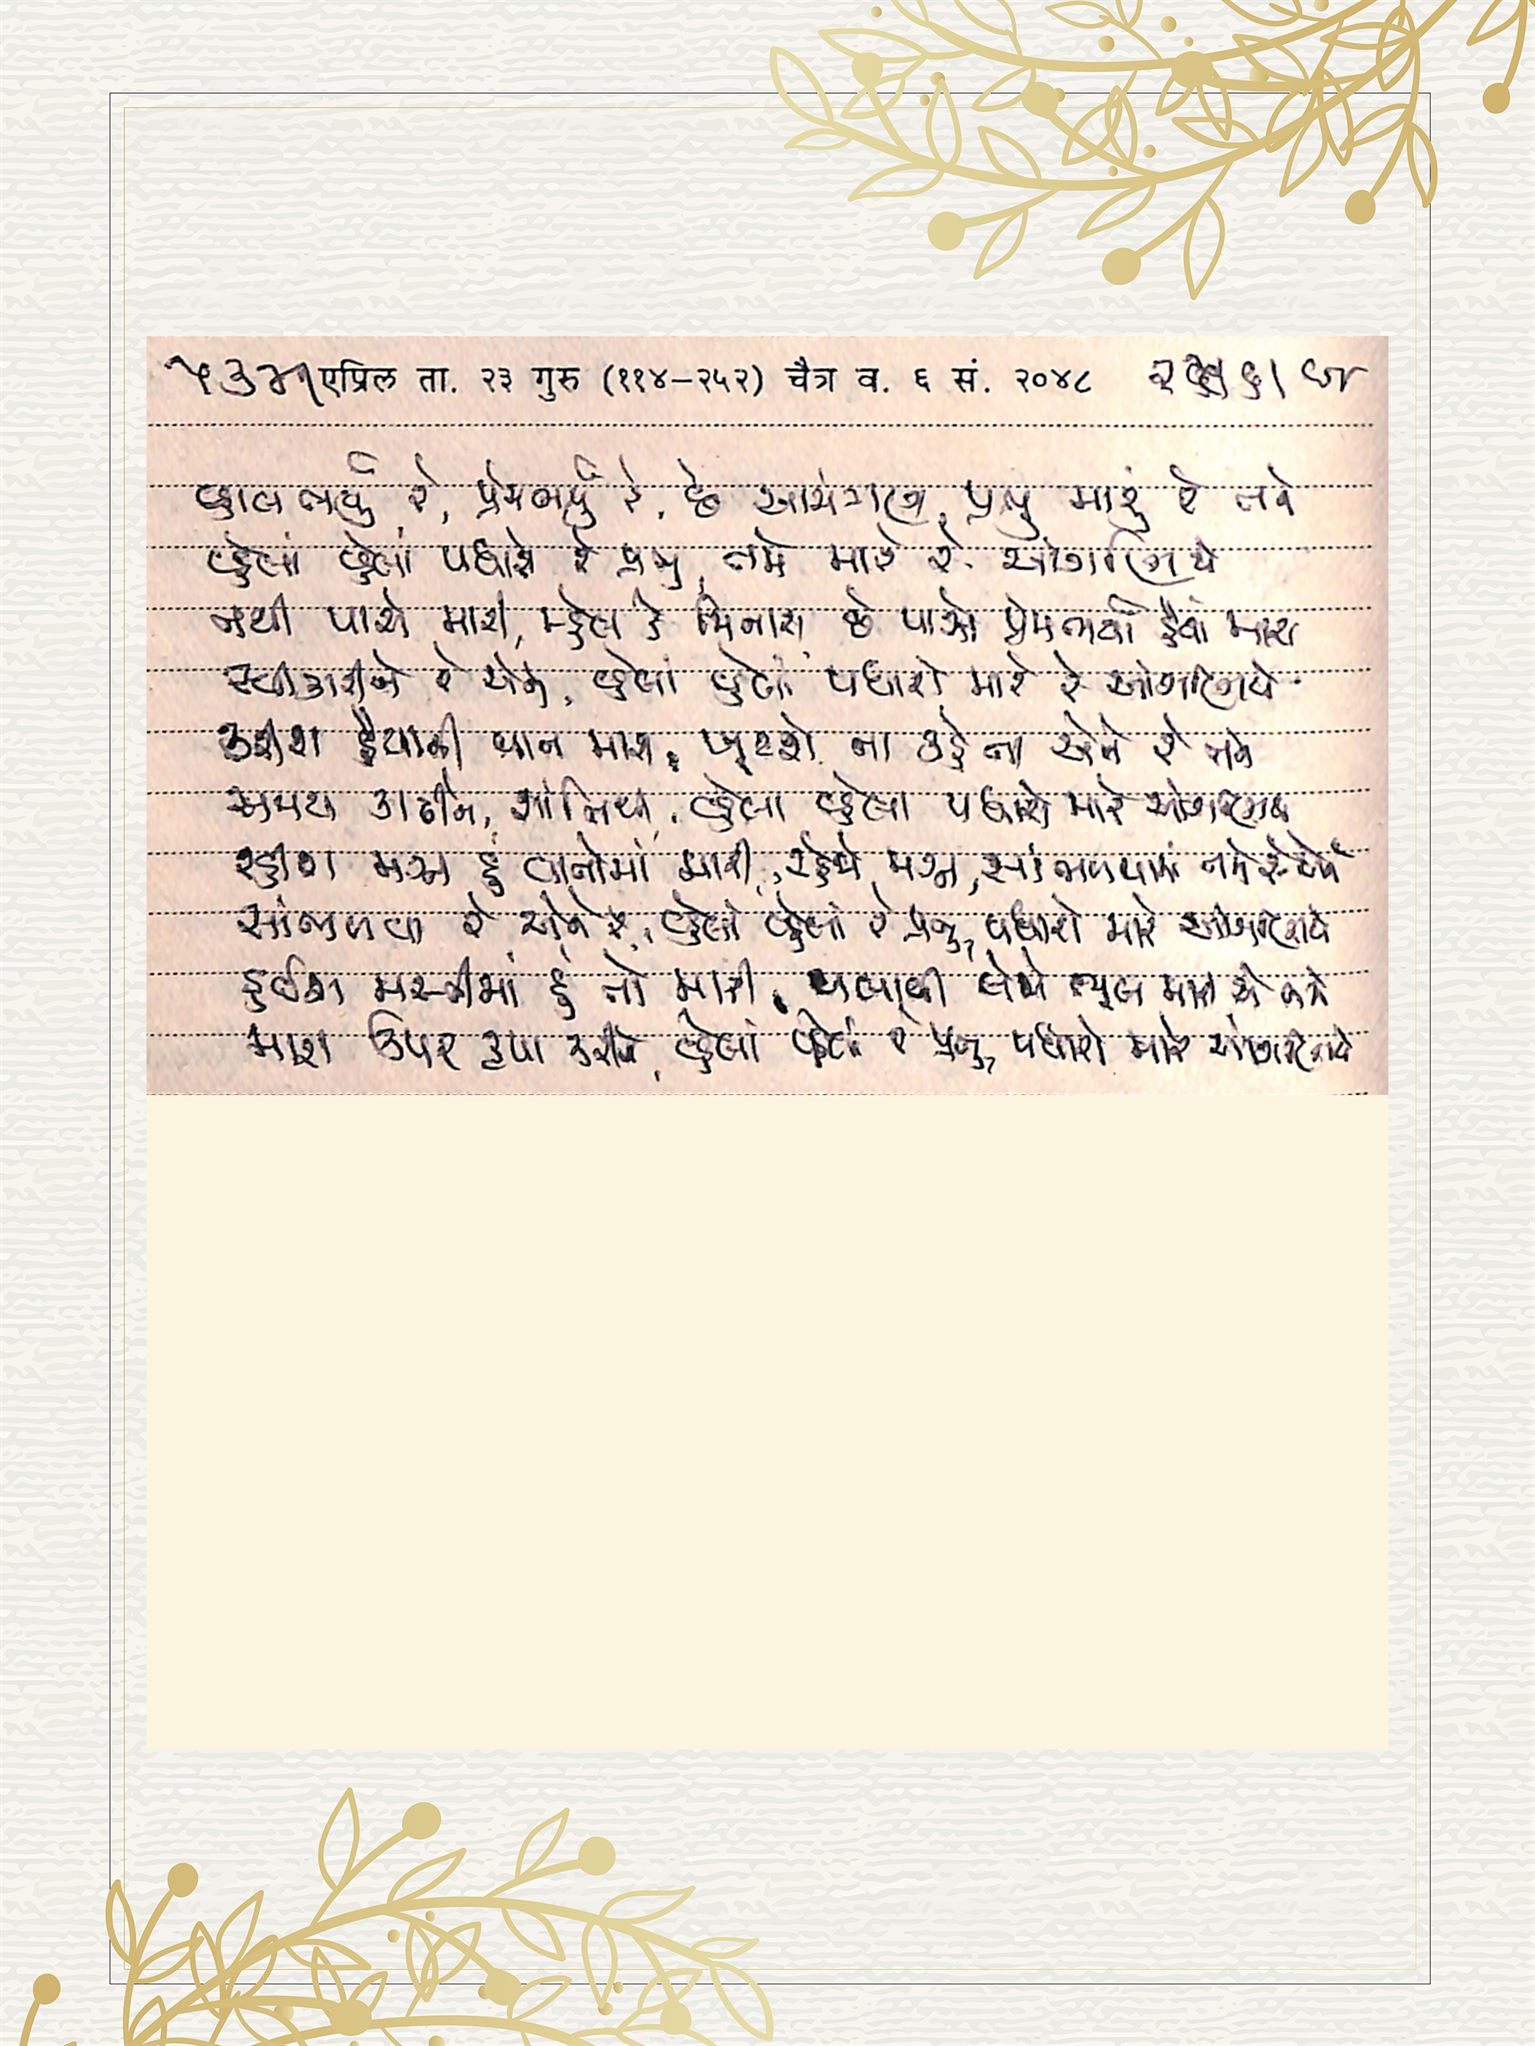 एप्रिल ता. २३ गुरु (११४-२५२) चैत्र व. ६ सं. २०४८
વ્હાલભર્યું રે, પ્રેમભર્યું રે, છે આમંત્રણ, પ્રભુ મારું રે તને
વ્હેલાં વ્હેલાં પધારો રે પ્રભુ, તમે મારે રે આંગણિયે
નથી પાસે મારી, મ્હેલ કે મિનારા, છે પાસે પ્રેમભર્યાં હૈયાં મારા
સ્વીકારીને રે એને, વ્હેલાં વ્હેલાં પધારો મારે રે આંગણિયે
કરીશ હૈયાની વાત મારી, ખૂટશે ના કહેતા એને રે તને
સમય કાઢીને, શાંતિથી, વ્હેલા વ્હેલા પધારો મારે આંગણિયે
રહીશ મગ્ન હું વાતોમાં મારી, રહેજે મગ્ન, સાંભળવામાં તમે રે એને
સાંભળવા રે એને રે, વ્હેલાં વ્હેલાં રે પ્રભુ, પધારો મારે આંગણિયે
હોઈશ મસ્તીમાં હું તો મારી, ચલાવી લેજે ભૂલ મારી એ તને
મારા ઉપર કૃપા કરીને, વ્હેલાં વ્હેલાં રે પ્રભુ, પધારો મારે આંગણિયે